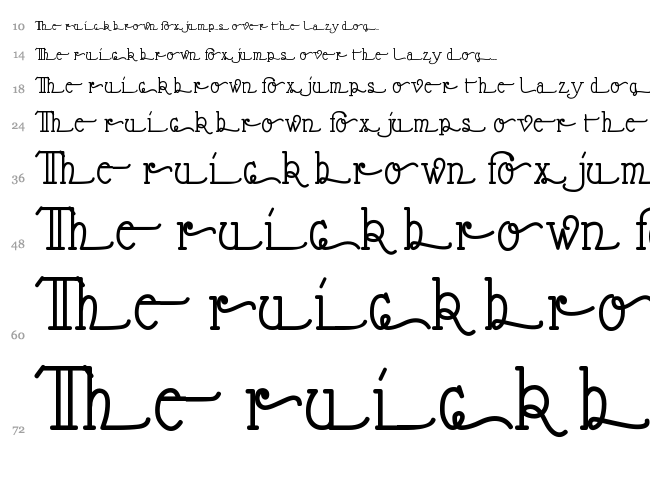 10 The ruick brown fox jumps over the lazy dog
14 The ruick brown fox jumps over the lazy dog
18 The ruick brown fox jumps over the lazy dog
24 The ruick brown fox jumps over the
36 The ruick brown fox jum
48 The ruick brown f
60 The ruick bro
72 The ruick b